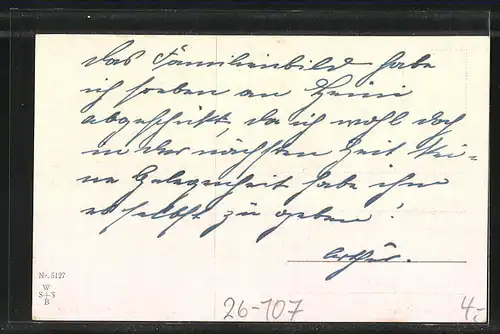 Das Familienbild habe
ich soeben an Heini
abgeschickt, da ich wohl doch
in der nächsten Zeit kei-
ne Gelegenheit habe ihm
es selbst zu geben!
Arthur.
Nr. 5127
W
S+S
B
26-107
4,-